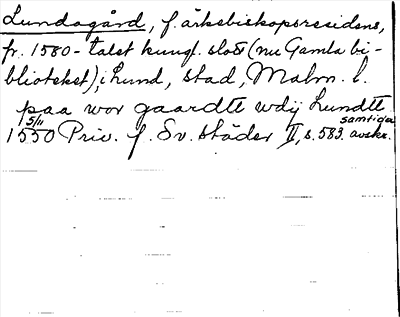 Lundagård, f. ärkebiskopsresidens,
fr. 1580-talet kungl. slott (nu Gamla bi-
blioteket), i Lund, stad, Malm. l.
paa wor gaardtt wdij Lundtt
1550 5/11 Priv. f. Sv. städer II, s. 583. samtida avskr.